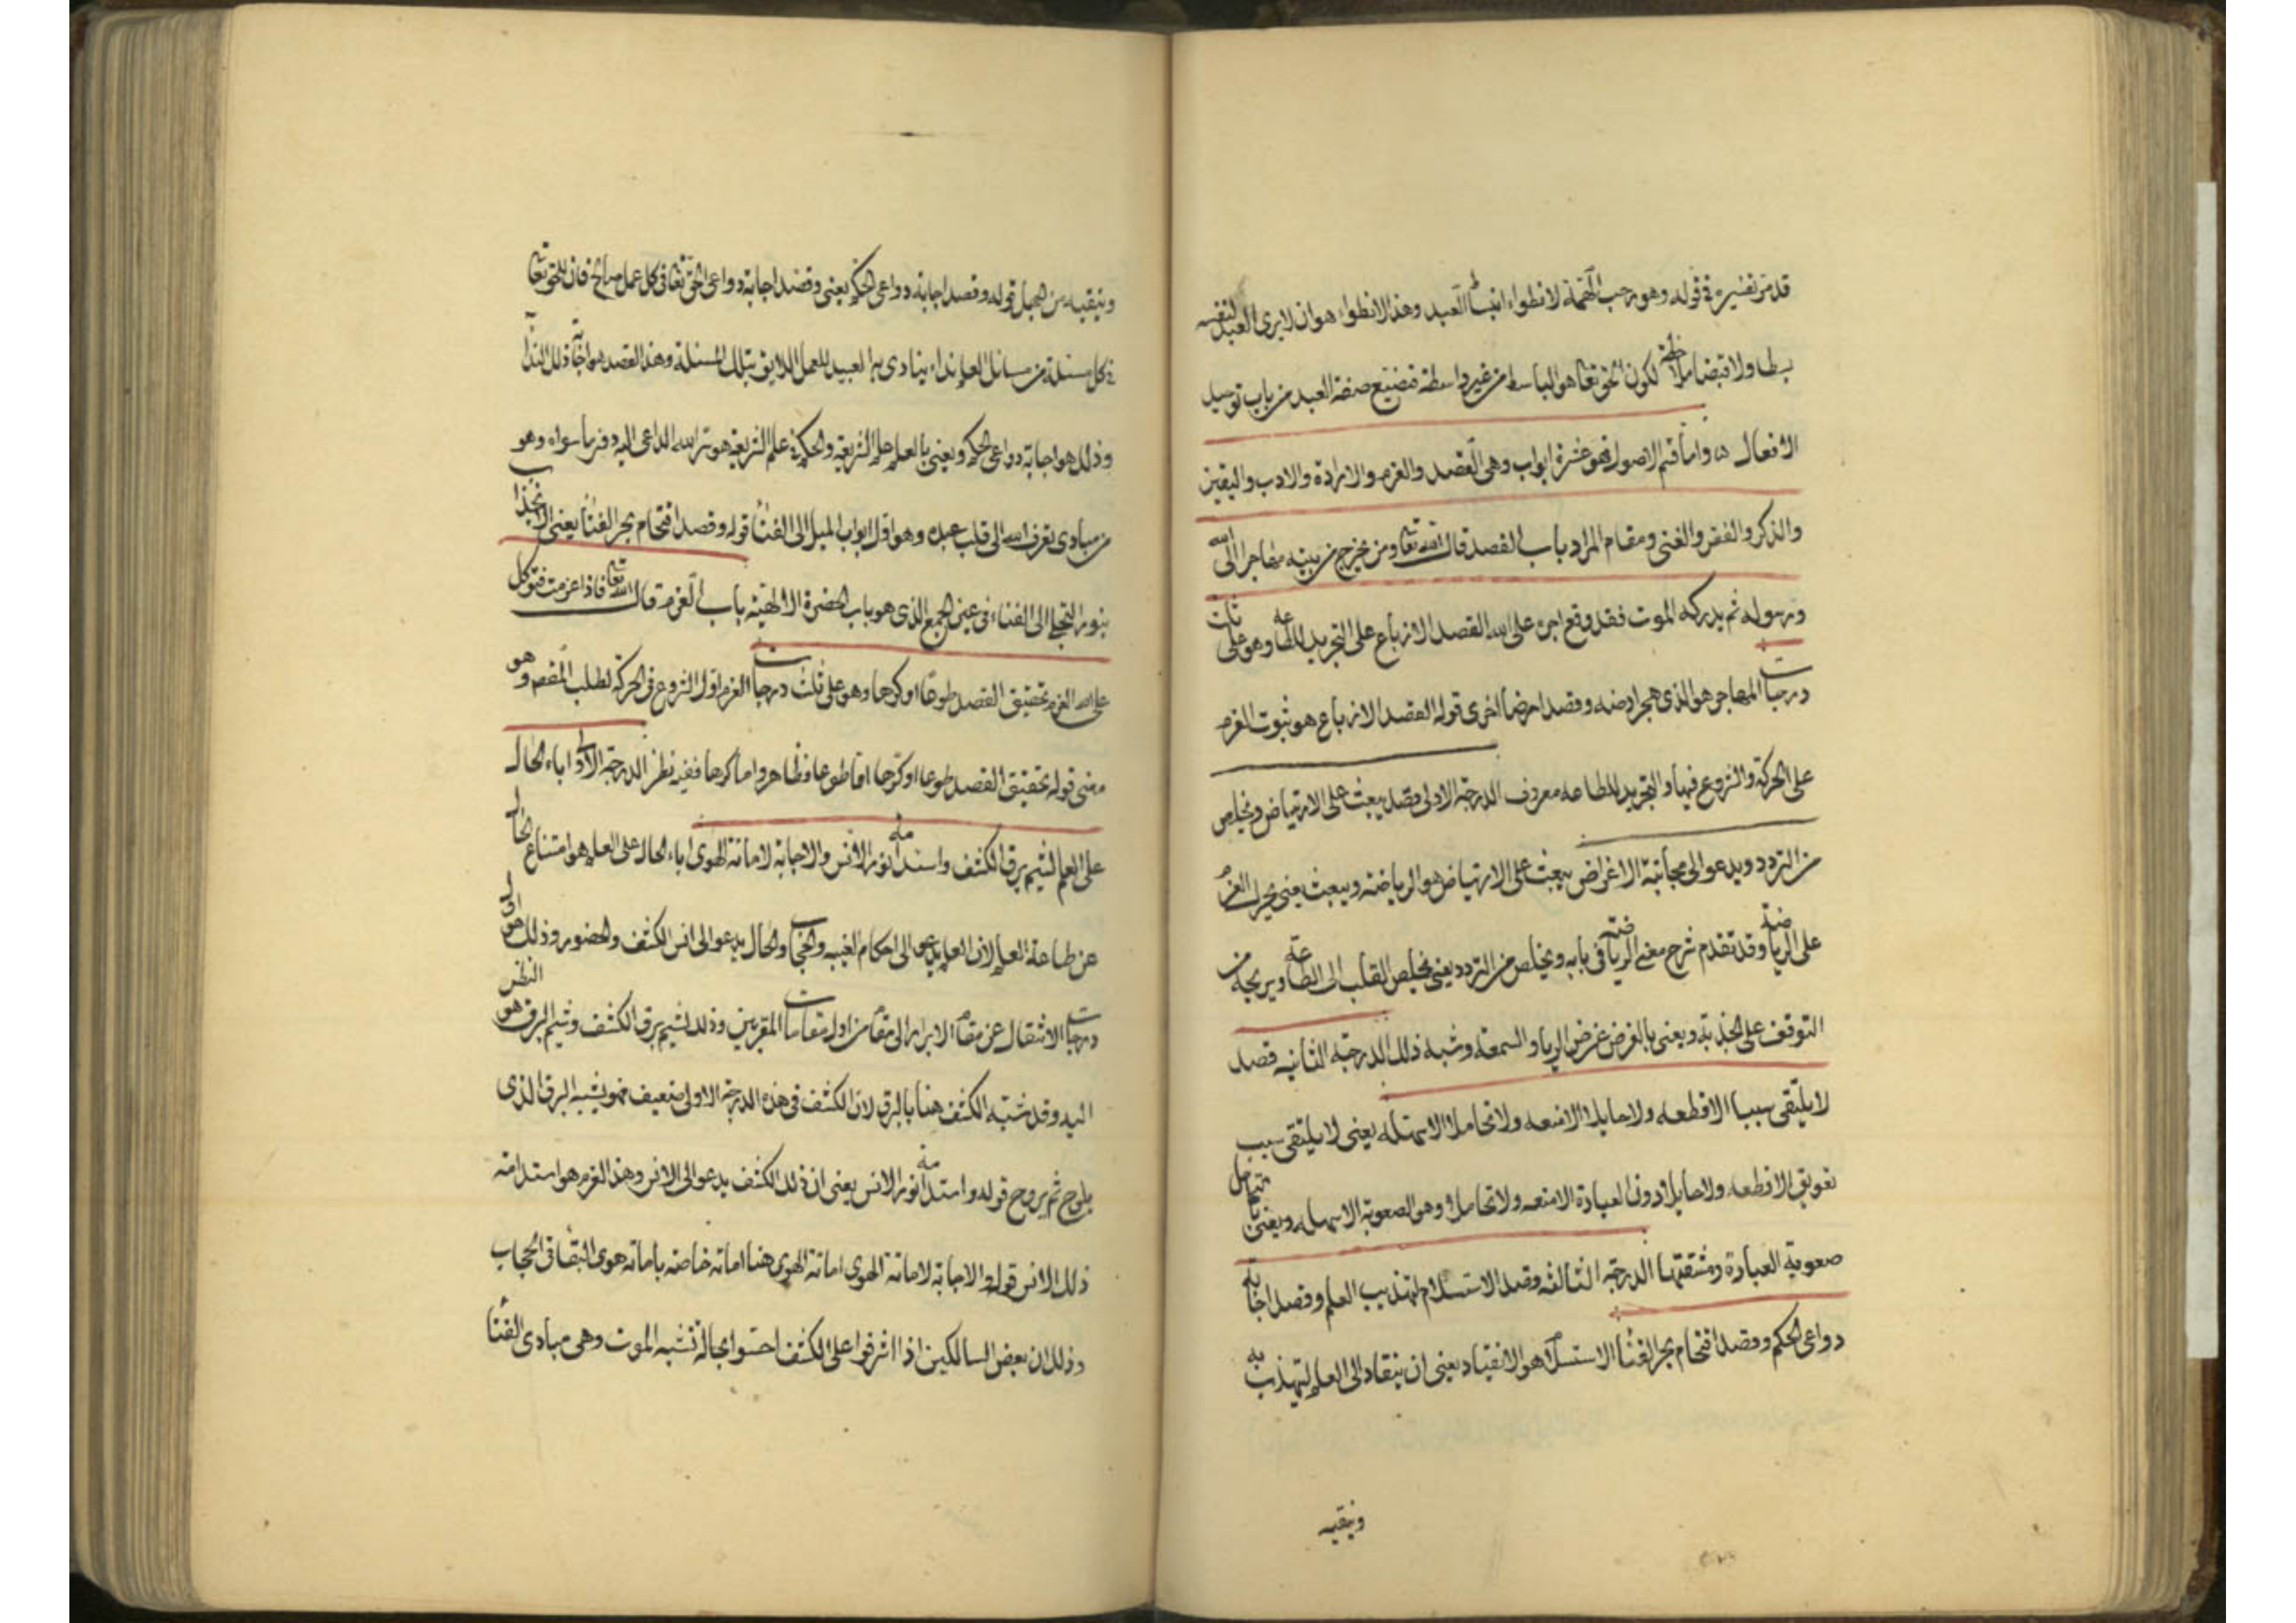 قد مر تفسيره في قوله وهو رحب الهمة لانطواء انبساط العبد وهذا الانطواء هو ان لا يرى العبد لنفسه
بسطا ولا قبضا ملاحظة لكون الحق تعا هو الباسط من غير واسطة فتضيع صفة العبد من باب توحيد
الافعال ۵ واما قسم الاصول فهو عشرة ابواب وهى القصد والعزم والارادة والادب واليقين
والذكر والفقر والغنى ومقام المراد باب القصد قال الله تعا ومن يخرج من بيته مهاجرا الى الله
ورسوله ثم يدركه الموت فقد وقع اجره على الله القصد الازماع على التجريد للطاعه وهو على ثلث
درجات المهاجر هو الذى هجر ارضه وقصد ارضا اخرى قوله القصد الازماع هو ثبوت العزم
على الحركة والنزوع فيها والتجريد للطاعه معروف الدرجة الاولى قصد يبعث على الارتياض ويخلص
من التردد ويدعو الى مجانبة الاغراض يبعث على الارتياض هو الرياضة ويبعث يعنى يحرك العزم
على الرياضة وقد تقدم شرح معنى الرياضة فى بابه ويخلص من التردد يعنى يخلص القلب الى الطاعة ويريحه من
التوقف على الجذبة ويعنى بالغرض غرض الريا والسمعة وشبه ذلك الدرجة الثانيه قصد
لا يلتقى سببا الا قطعه ولا حايلا الا منعه ولا تحاملا الا سهله يعنى لا يلتقى سبب
تعويق الا قطعه ولا حايلا دون العبادة الا منعه ولا تحاملا وهو الصعوبة الا سهله ويعنى بالتحامل
صعوبة العبادة ومشقتها الدرجة الثالثه وقصد الاستسلام لتهذيب العلم وقصد اجابة
دواعى الحكم وقصد اقتحام بحر الفنا الاستسلام هو الانقياد يعنى ان ينقاد الى العلم لتهذيبه
وينقيه
وينقيه من الجهل قوله وقصد اجابة دواعى الحكم يعنى وقصد اجابة دواعى الحق تعا فى كل عمل صالح فان للحق تعا
فى كل مسئلة من مسائل العلم نداء ينادى به العبيد للعمل اللايق بتلك المسئلة وهذا القصد هو اجابة ذلك الندا
وذلك هو اجابة دواعى الحكم ويعنى بالعلم علم الشريعة والحكمة علم الشريعة هو سر الله الداعى اليه دون ما سواه وهو
من مبادى تعرف الله الى قلب عبده وهو اول ابواب الميل الى الفنا قوله وقصد اقتحام بحر الفنا يعنى الانجذاب
بنور التجلى الى الفناء فى عين الجمع الذى هو باب الحضرة الالهيه باب العزم قال الله تعا فاذا عزمت فتوكل
على الله العزم تحقيق القصد طوعا او كرها وهو على ثلث درجات العزم اول النزوع فى الحركة لطلب المقصود وهو
معنى قوله تحقيق القصد طوعا او كرها اما طوعا فظاهر واما كرها ففيه نظر الدرجة الاولى اباء الحال
على العلم لشيم برق الكشف واستدامة نور الانس والاجابة لاماتة الهوى اباء الحال على العلم هو امتناع الحال
عن طاعة العلم لان العلم يدعو الى احكام الغيبة والحجاب والحال يدعو الى انس الكشف والحضور وذلك هو اول
درجات الانتقال عن مقام الابرار الى مقام من اول مقامات المقربين وذلك لشيم برق الكشف وشيم البرق هو النظر
اليه وقد شبه الكشف هنا بالبرق لان الكشف فى هذه الدرجة الاولى ضعيف فهو يشبه البرق الذى
يلوح ثم يروح قوله واستدامة نور الانس يعنى ان ذلك الكشف يدعو الى الانس وهذا العزم هو استدامة
ذلك الانس قوله والاجابة لاماتة الهوى اماتة الهوى هنا اماتة خاصه باماتة هوى البقا فى الحجاب
وذلك ان بعض السالكين اذا اشرفوا على الكشف احسوا بحالة تشبه الموت وهى مبادى الفنا